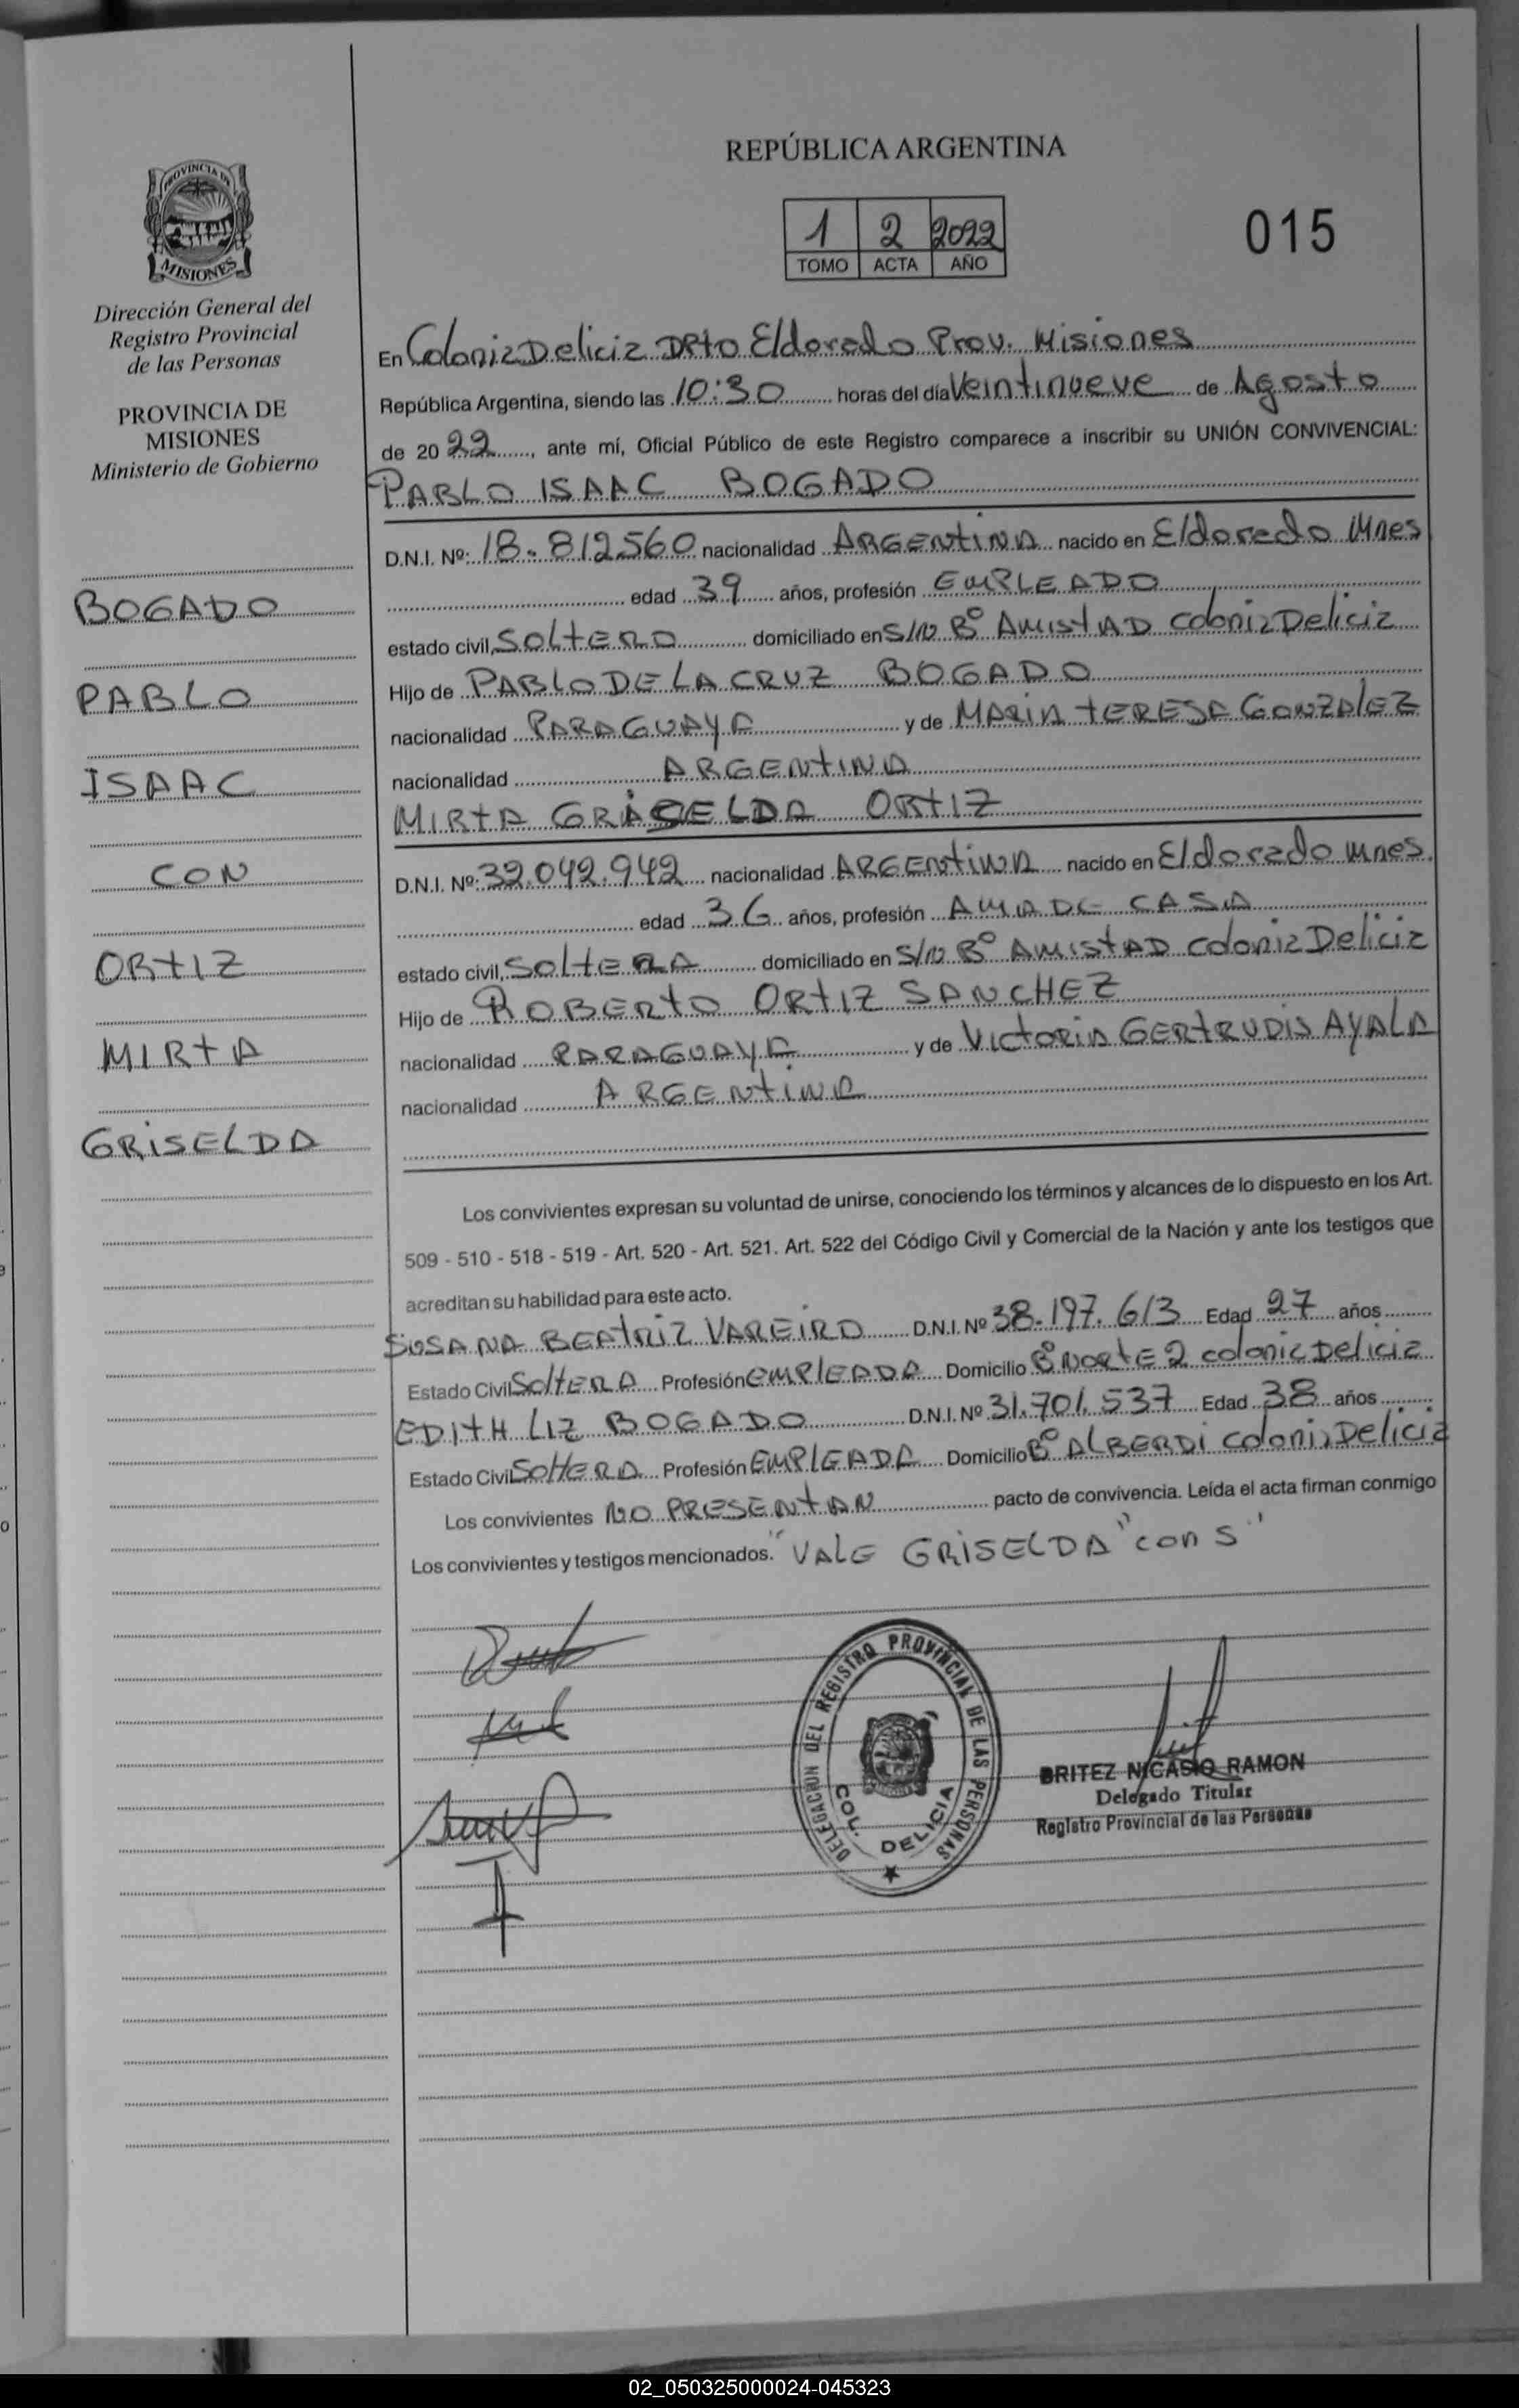 PROVINCIA DE
MISIONES
Dirección General del
Registro Provincial
de las Personas
PROVINCIA DE
MISIONES
Ministerio de Gobierno
BOGADO
PABLO
ISAAC
CON
ORTIZ
MIRTA
GRISELDA
REPÚBLICA ARGENTINA
1 2 2022
TOMO ACTA AÑO
015
En Colonia Delicia DPto Eldorado Prov. Misiones
República Argentina, siendo las 10:30 horas del día Veintinueve de Agosto
de 20 22, ante mí, Oficial Público de este Registro comparece a inscribir su UNIÓN CONVIVENCIAL:
PABLO ISAAC BOGADO
D.N.I. Nº: 18.812560 nacionalidad ARGENTINA nacido en Eldorado Mnes
edad 39 años, profesión EMPLEADO
estado civil, SOLTERO domiciliado en S/N Bº AMISTAD Colonia Delicia
Hijo de PABLO DE LA CRUZ BOGADO
nacionalidad PARAGUAYA y de MARIA TERESA GONZALEZ
nacionalidad ARGENTINA
MIRTA GRISELDA ORTIZ
D.N.I. Nº: 32.042.942 nacionalidad ARGENTINA nacido en Eldorado Mnes.
edad 36 años, profesión AMA DE CASA
estado civil, SOLTERA domiciliado en S/N Bº AMISTAD Colonia Delicia
Hijo de ROBERTO ORTIZ SANCHEZ
nacionalidad PARAGUAYA y de VICTORIA GERTRUDIS AYALA
nacionalidad ARGENTINA
Los convivientes expresan su voluntad de unirse, conociendo los términos y alcances de lo dispuesto en los Art.
509 - 510 - 518 - 519 - Art. 520 - Art. 521. Art. 522 del Código Civil y Comercial de la Nación y ante los testigos que
acreditan su habilidad para este acto.
SUSANA BEATRIZ VAREIRO D.N.I. Nº 38.197.613 Edad 27 años
Estado Civil SOLTERA Profesión EMPLEADA Domicilio Bº NORTE 2 Colonia Delicia
EDITH LIZ BOGADO D.N.I. Nº 31.701.537 Edad 38 años
Estado Civil SOLTERA Profesión EMPLEADA Domicilio Bº ALBERDI Colonia Delicia
Los convivientes NO PRESENTAN pacto de convivencia. Leída el acta firman conmigo
Los convivientes y testigos mencionados. "VALE GRISELDA "con S"
DELEGACION DEL REGISTRO PROVINCIAL DE LAS PERSONAS
COL. DELICIA
BRITEZ NICASIO RAMON
Delegado Titular
Registro Provincial de las Personas
02_050325000024-045323